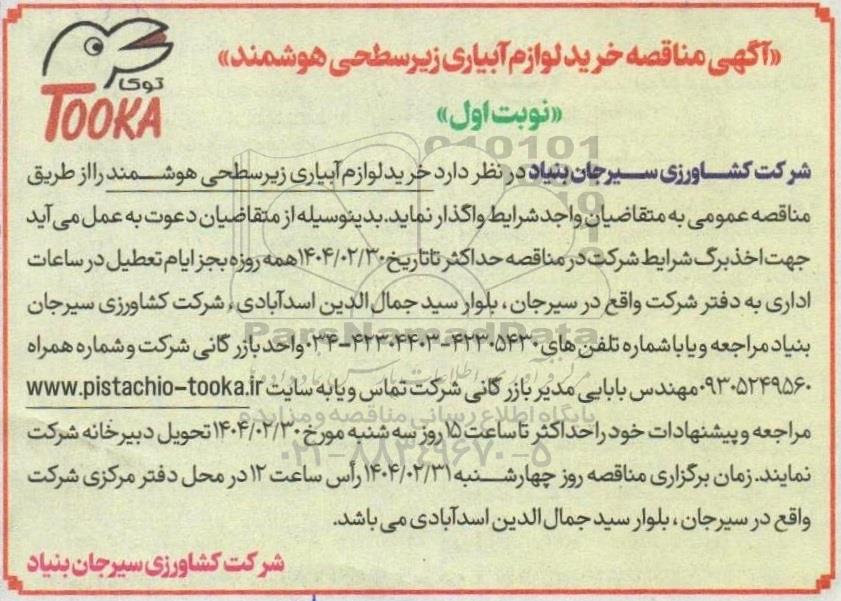 توکا
TOOKA
«آگهی مناقصه خرید لوازم آبیاری زیرسطحی هوشمند»
«نوبت اول»
شرکت کشاورزی سیرجان بنیاد در نظر دارد خرید لوازم آبیاری زیرسطحی هوشمند را از طریق
مناقصه عمومی به متقاضیان واجد شرایط واگذار نماید. بدینوسیله از متقاضیان دعوت به عمل می آید
جهت اخذ برگ شرایط شرکت در مناقصه حداکثر تا تاریخ ۱۴۰۴/۰۲/۳۰ همه روزه بجز ایام تعطیل در ساعات
اداری به دفتر شرکت واقع در سیرجان ، بلوار سید جمال الدین اسدآبادی ، شرکت کشاورزی سیرجان
بنیاد مراجعه و یا با شماره تلفن های ۴۲۳۰۵۴۳۰-۴۲۳۰۴۴۰۳-۰۳۴ واحد بازرگانی شرکت و شماره همراه
۰۹۳۰۵۲۴۹۵۶۰ مهندس بابایی مدیر بازرگانی شرکت تماس و یا به سایت www.pistachio-tooka.ir
مراجعه و پیشنهادات خود را حداکثر تا ساعت ۱۵ روز سه شنبه مورخ ۱۴۰۴/۰۲/۳۰ تحویل دبیرخانه شرکت
نمایند. زمان برگزاری مناقصه روز چهارشنبه ۱۴۰۴/۰۲/۳۱ رأس ساعت ۱۲ در محل دفتر مرکزی شرکت
واقع در سیرجان ، بلوار سید جمال الدین اسدآبادی می باشد.
شرکت کشاورزی سیرجان بنیاد
ParsNamadData
پایگاه اطلاع رسانی مناقصه و مزایده
۰۲۱-۸۸۳۴۹۶۷۰-۵